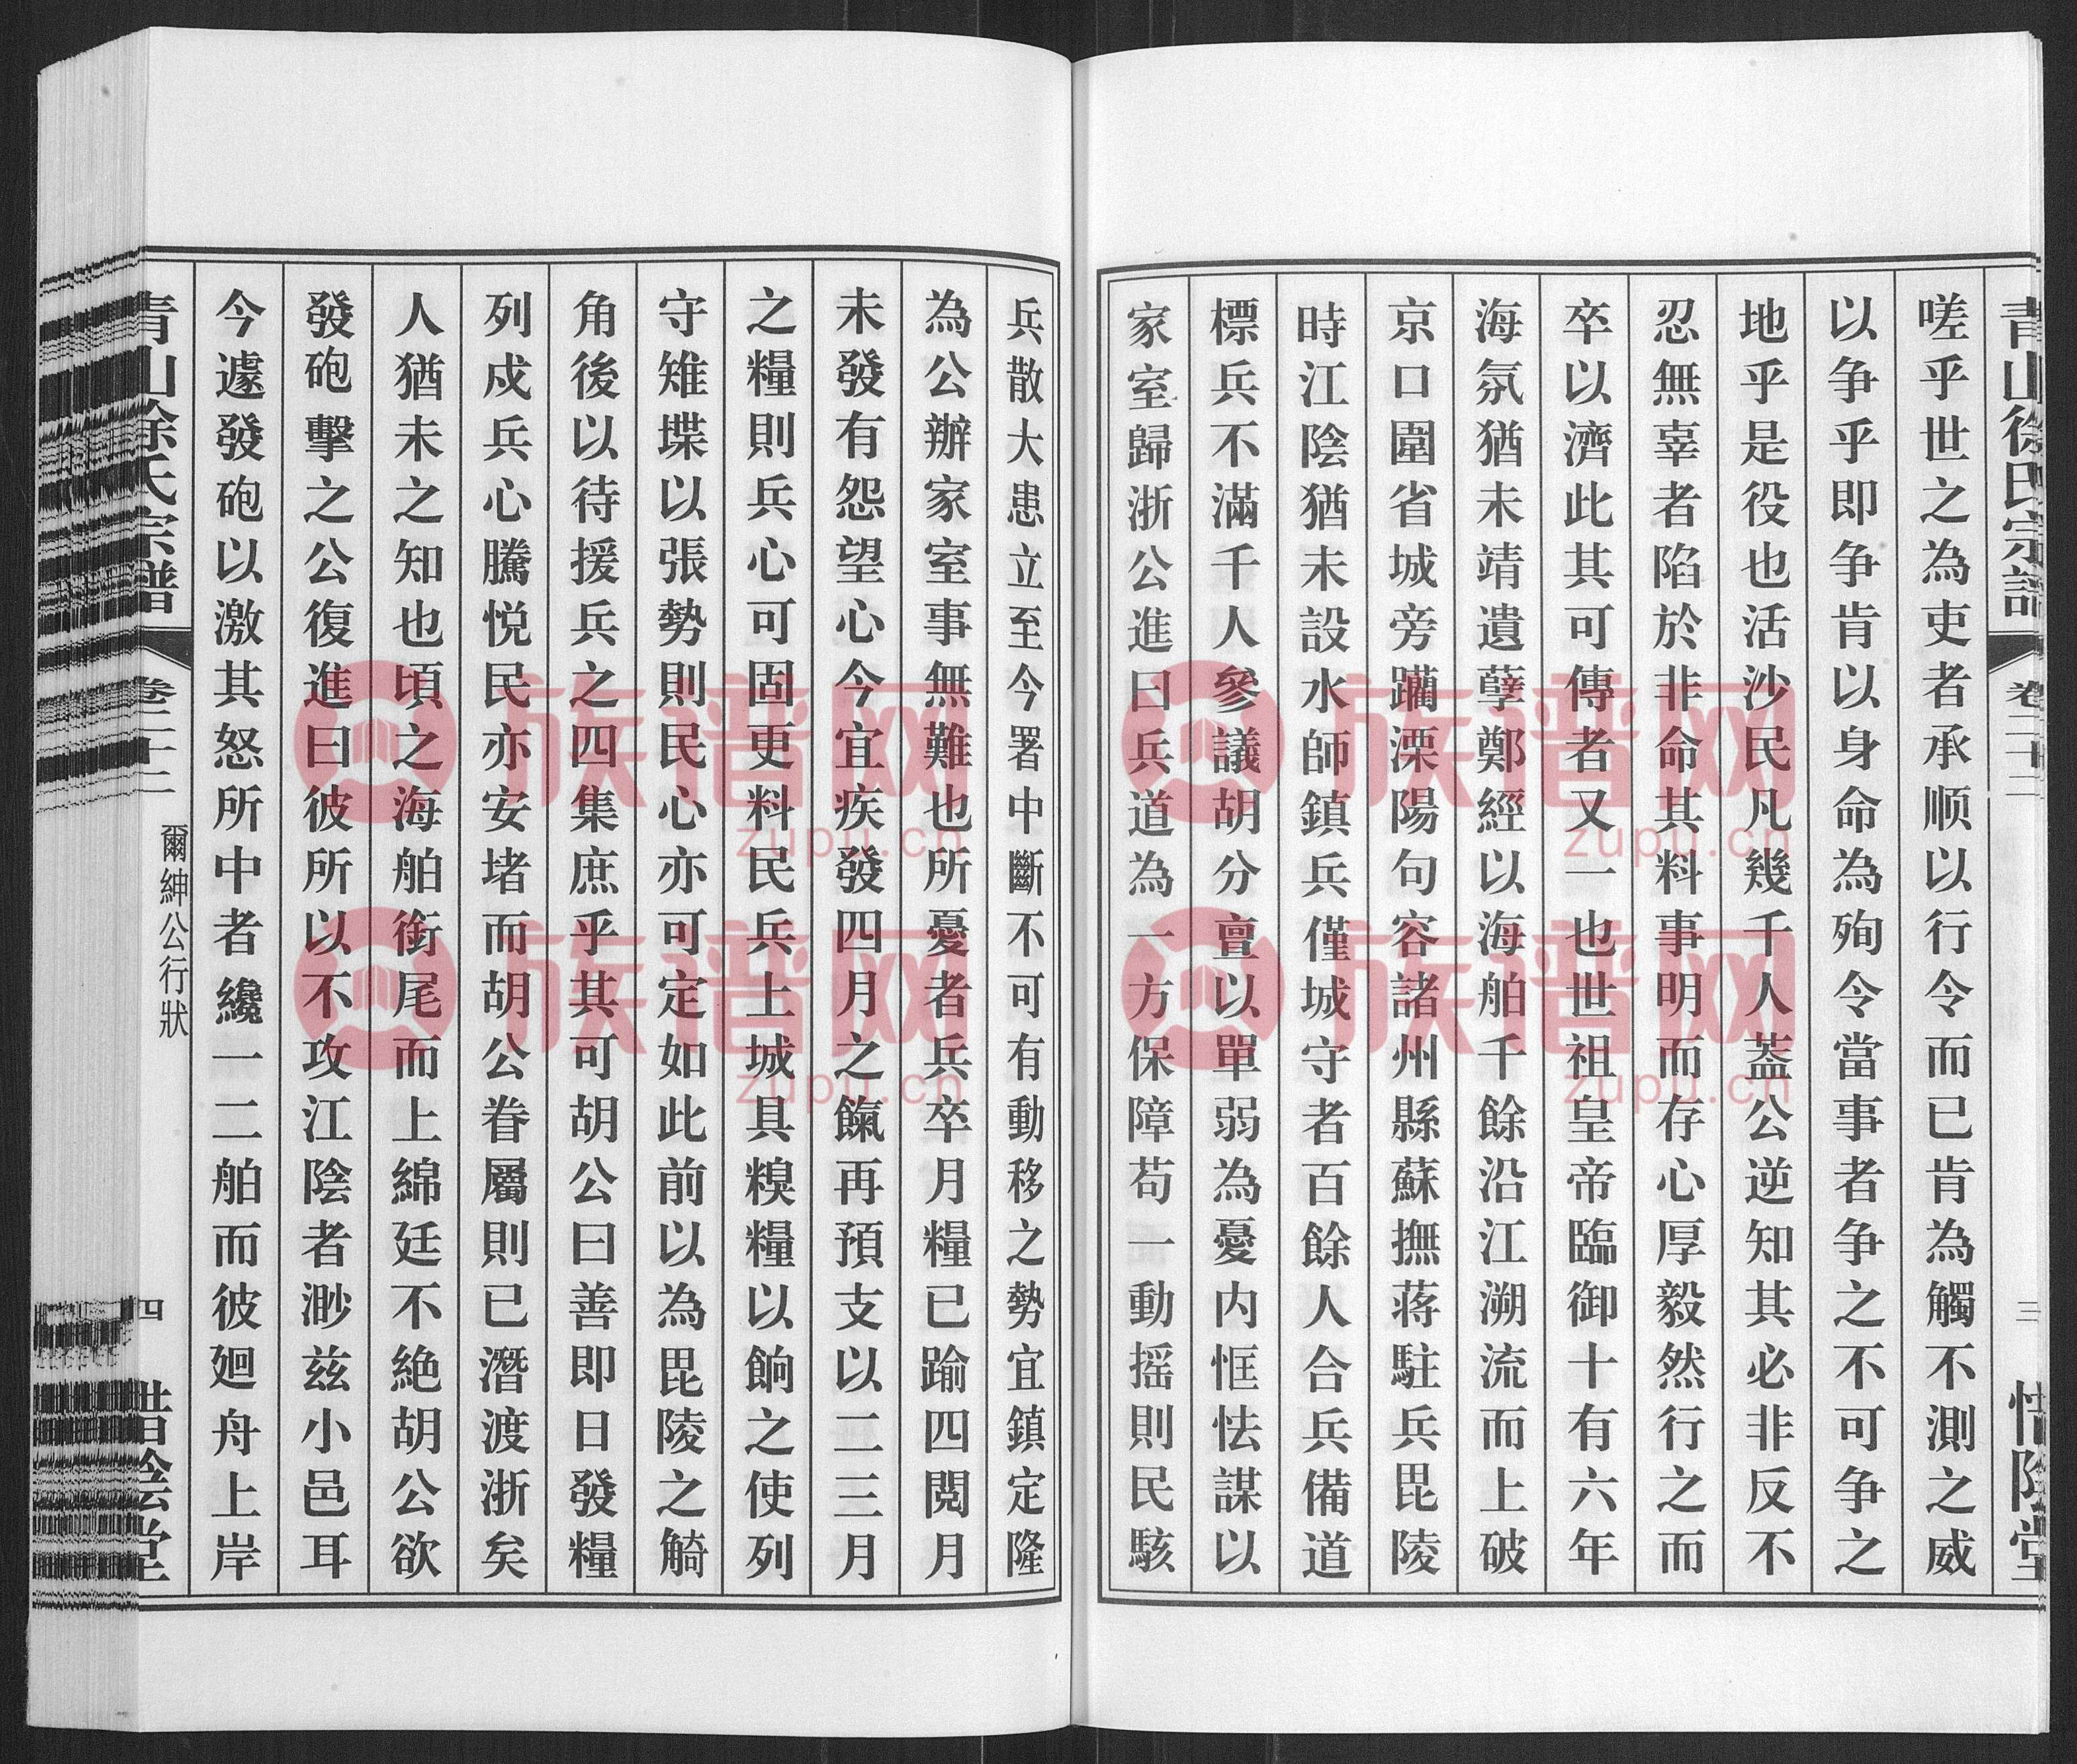 青山徐氏宗譜
卷二十二
三
惜陰堂
嗟乎世之為吏者承順以行令而已肯為觸不測之威
以争乎即争肯以身命為殉令當事者争之不可争之
地乎是役也活沙民凡幾千人蓋公逆知其必非反不
忍無辜者陷於非命其料事明而存心厚毅然行之而
卒以濟此其可傳者又一也世祖皇帝臨御十有六年
海氛猶未靖遺孽鄭經以海舶千餘沿江溯流而上破
京口圍省城旁躪溧陽句容諸州縣蘇撫蒋駐兵毘陵
時江陰猶未設水師鎮兵僅城守者百餘人合兵備道
標兵不滿千人參議胡分亶以單弱為憂内恇怯謀以
家室歸浙公進曰兵道為一方保障苟一動摇則民駭
兵散大患立至今署中斷不可有動移之勢宜鎮定隆
為公辦家室事無難也所憂者兵卒月糧已踰四閱月
未發有怨望心今宜疾發四月之餼再預支以二三月
之糧則兵心可固更料民兵上城具糗糧以餉之使列
守雉堞以張勢則民心亦可定如此前以為毘陵之觭
角後以待援兵之四集庶乎其可胡公曰善即日發糧
列戍兵心騰悦民亦安堵而胡公眷屬則已潛渡浙矣
人猶未之知也頃之海舶銜尾而上綿廷不絶胡公欲
發砲擊之公復進曰彼所以不攻江陰者渺兹小邑耳
今遽發砲以激其怒所中者纔一二舶而彼廻舟上岸
青山徐氏宗譜
卷二十二
爾紳公行狀
四
惜陰堂
族谱网
zupu.cn
族谱网
zupu.cn
族谱网
zupu.cn
族谱网
zupu.cn